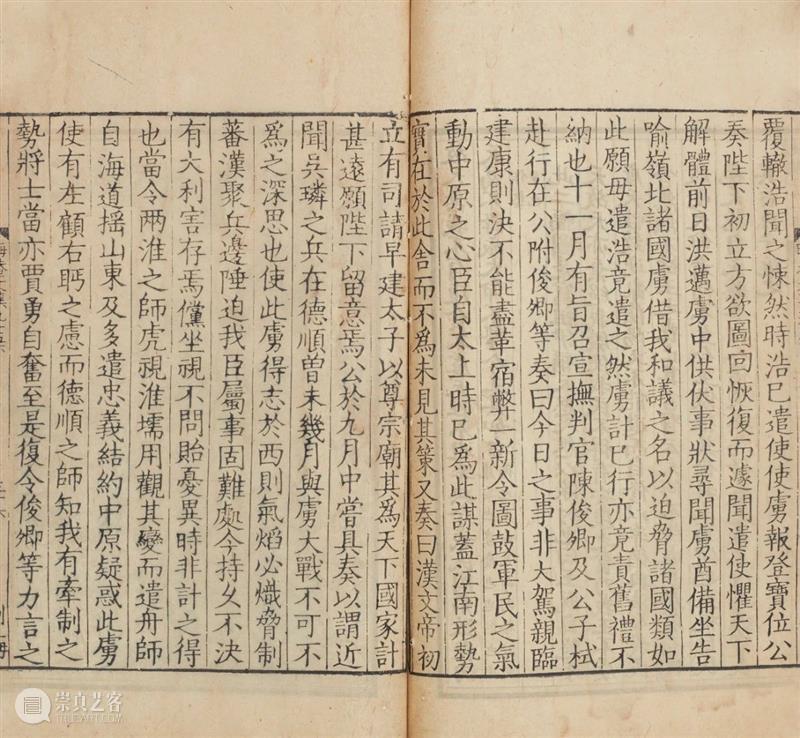 覆轍浩聞之悚然時浩已遣使使虜報登寶位公
奏陛下初立方欲圖回恢復而遽聞遣使懼天下
解體前日洪邁虜中供伏事狀尋聞虜酋備坐告
喻嶺北諸國虜借我和議之名以迫脅諸國類如
此願毋遣浩竟遣之然虜計已行亦竟責舊禮不
納也十一月有旨召宣撫判官陳俊卿及公子栻
赴行在公附俊卿等奏曰今日之事非大駕親臨
建康則決不能盡革宿弊一新令圖鼓軍民之氣
動中原之心臣自太上時已爲此謀蓋江南形勢
實在於此舍而不爲未見其策又奏曰漢文帝初
立有司請早建太子以尊宗廟其爲天下國家計
甚遠願陛下留意焉公於九月中嘗具奏以謂近
聞吳璘之兵在德順曾未幾月與虜大戰不可不
爲之深思也使此虜得志於西則氣焰必熾脅制
蕃漢聚兵邊陲迫我臣屬事固難處今持久不決
有大利害存焉儻坐視不問貽憂異時非計之得
也當令兩淮之師虎視淮壖用觀其變而遣舟師
自海道搖山東及多遣忠義結約中原疑惑此虜
使有左顧右眄之慮而德順之師知我有牽制之
勢將士當亦賈勇自奮至是復令俊卿等力言之
崇真艺客
TRUEART.COM